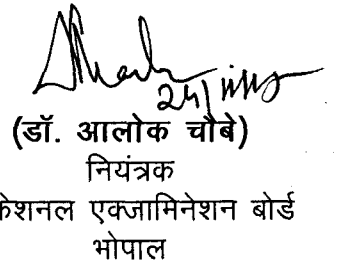 (डॉ. आलोक चौबे)
नियंत्रक
केशनल एक्जामिनेशन बोर्ड
भोपाल